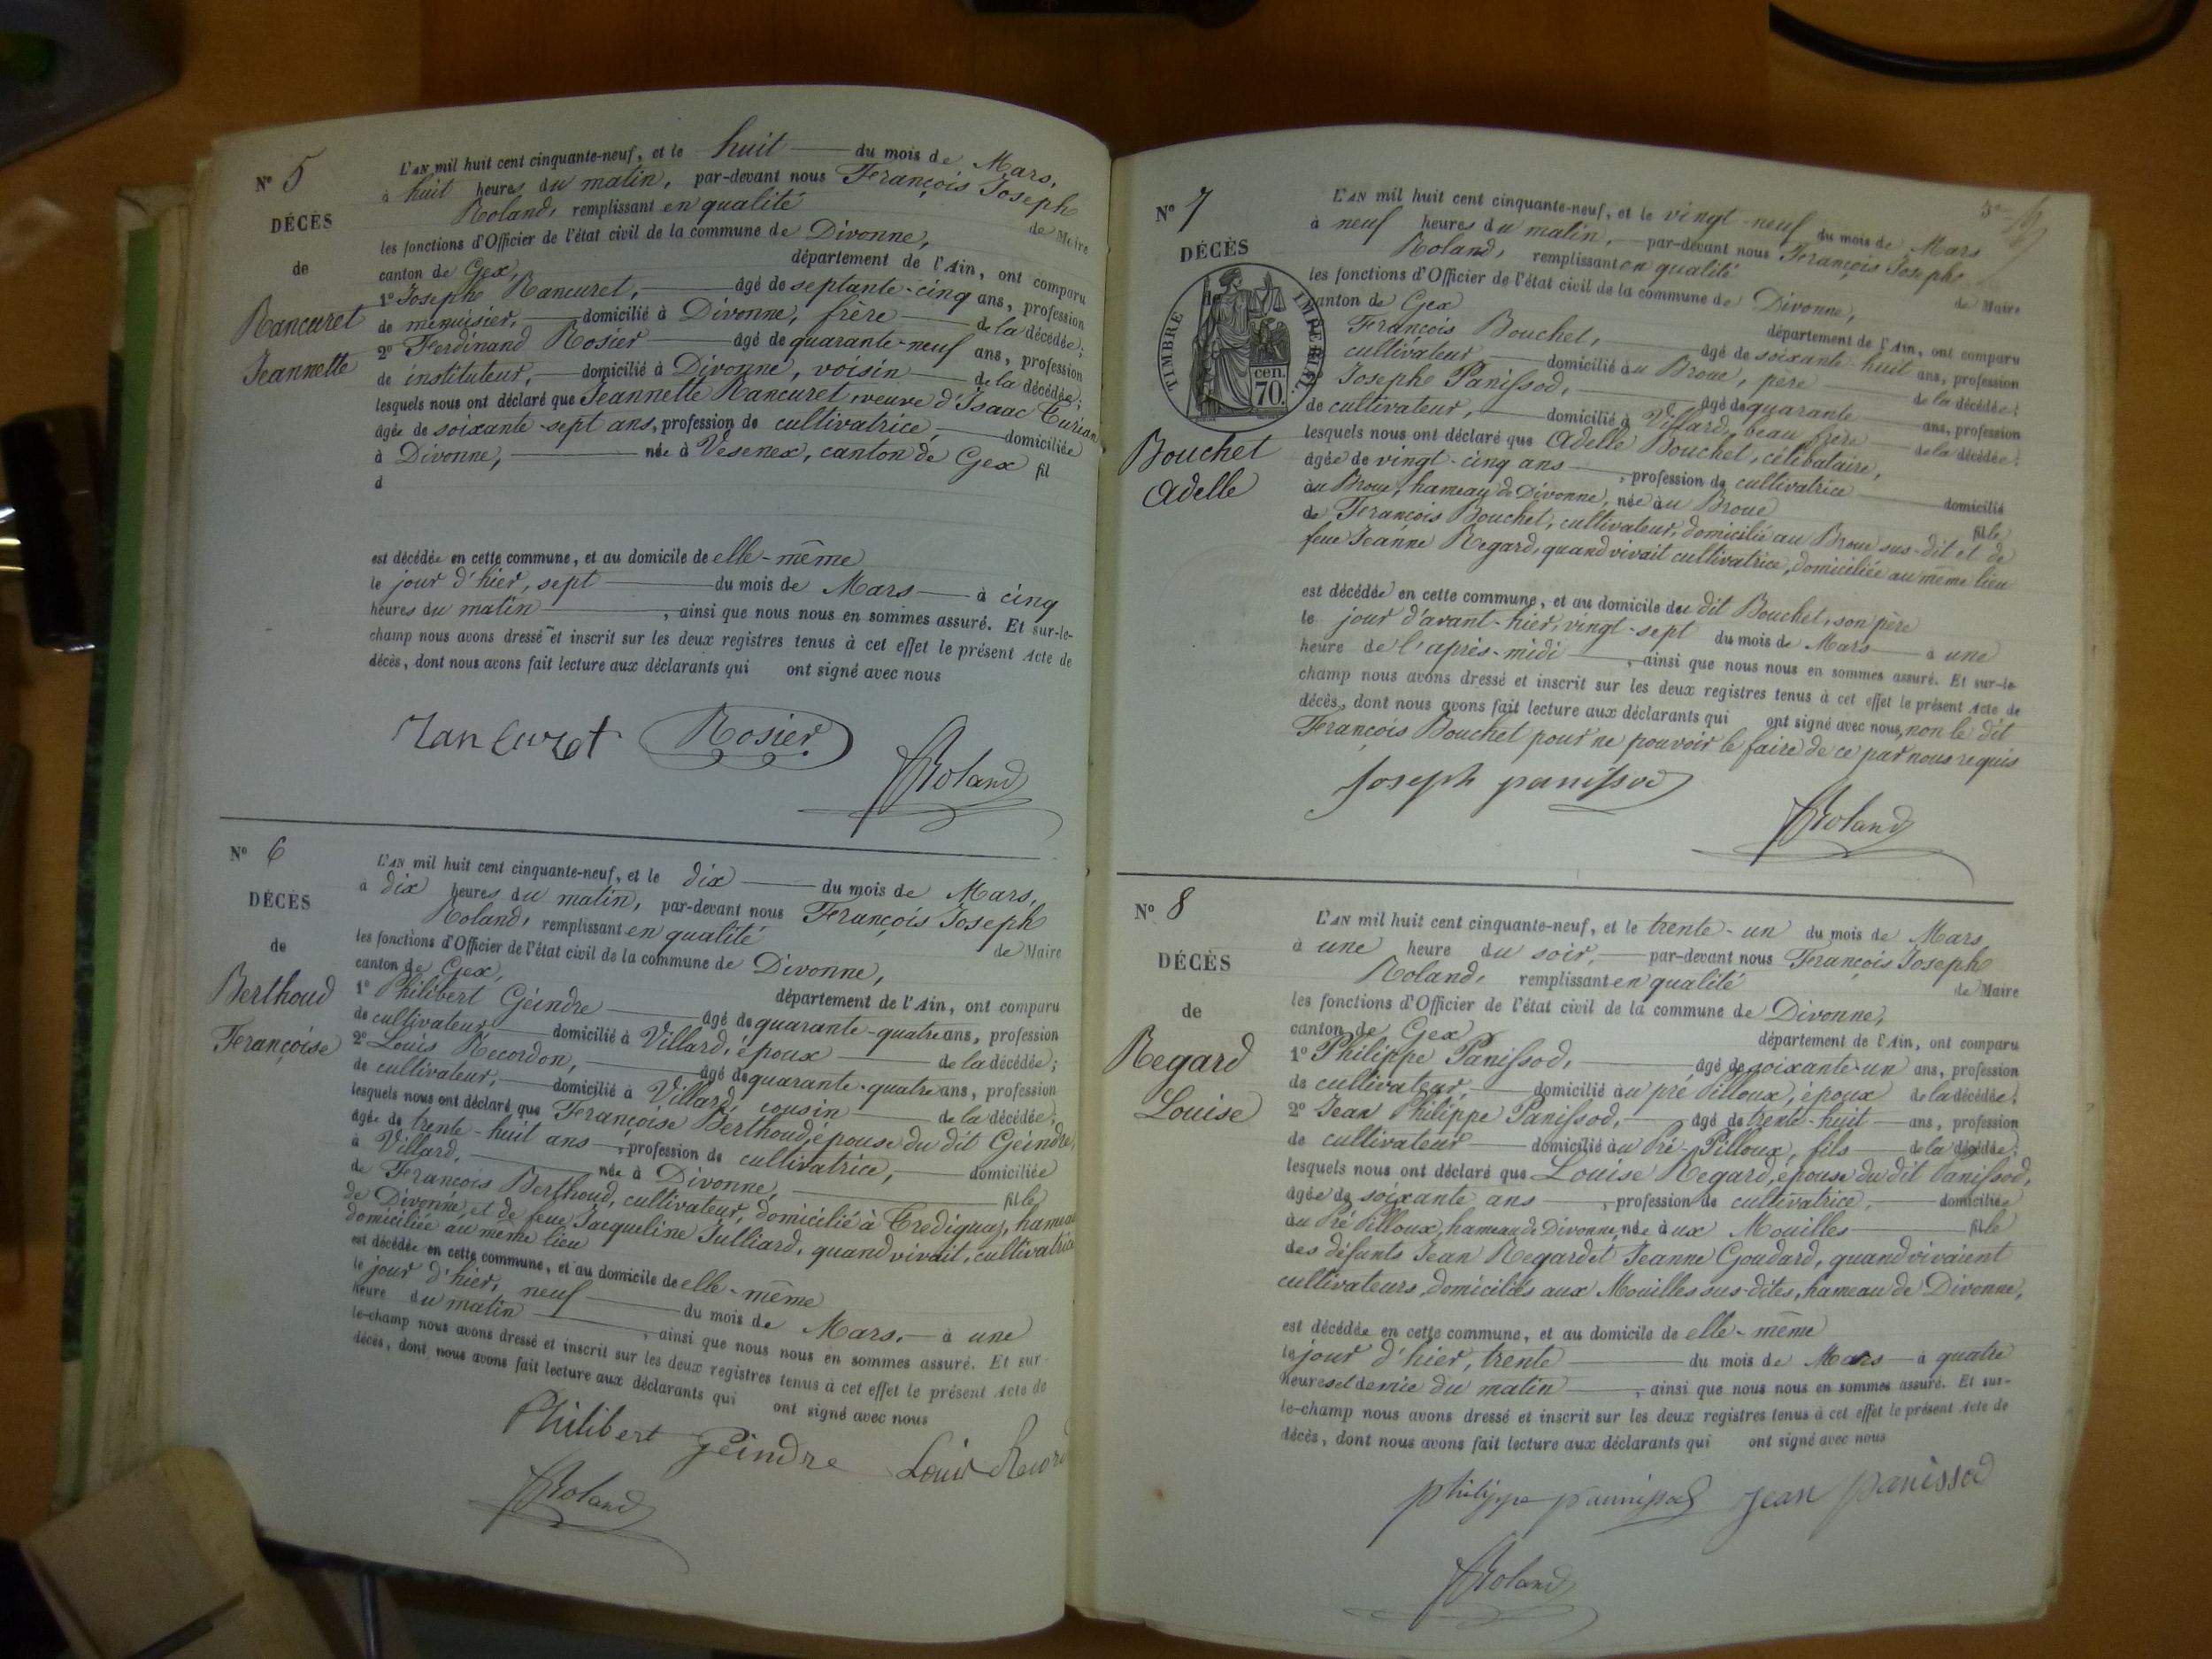 N° 5
DÉCÈS
de
Rancuret
Jeannette
L'AN mil huit cent cinquante-neuf, et le huit du mois de Mars,
à huit heures du matin, par-devant nous François Joseph
Roland, remplissant en qualité de Maire
les fonctions d'Officier de l'état civil de la commune de Divonne,
canton de Gex, département de l'Ain, ont comparu
1° Joseph Rancuret, âgé de septante-cinq ans, profession
de menuisier, domicilié à Divonne, frère de la décédée;
2° Ferdinand Rosier âgé de quarante-neuf ans, profession
de instituteur, domicilié à Divonne, voisin de la décédée;
lesquels nous ont déclaré que Jeannette Rancuret, veuve d'Isaac Turian
âgée de soixante-sept ans, profession de cultivatrice, domiciliée
à Divonne, née à Vesenex, canton de Gex fil
d
est décédée en cette commune, et au domicile de elle-même
le jour d'hier, sept du mois de Mars à cinq
heures du matin, ainsi que nous nous en sommes assuré. Et sur-le-
champ nous avons dressé et inscrit sur les deux registres tenus à cet effet le présent Acte de
décès, dont nous avons fait lecture aux déclarants qui ont signé avec nous
Rancuret Rosier
Roland
N° 6
DÉCÈS
de
Berthoud
Françoise
L'AN mil huit cent cinquante-neuf, et le dix du mois de Mars,
à dix heures du matin, par-devant nous François Joseph
Roland, remplissant en qualité de Maire
les fonctions d'Officier de l'état civil de la commune de Divonne,
canton de Gex, département de l'Ain, ont comparu
1° Philibert Geindre âgé de quarante-quatre ans, profession
de cultivateur domicilié à Villard, époux de la décédée;
2° Louis Recordon, âgé de quarante-quatre ans, profession
de cultivateur, domicilié à Villard, cousin de la décédée;
lesquels nous ont déclaré que Françoise Berthoud, épouse du dit Geindre,
âgée de trente-huit ans, profession de cultivatrice, domiciliée
à Villard, née à Divonne, fille
de François Berthoud, cultivateur, domicilié à hameau
de Divonne, et de feue Jacqueline Julliard, quand vivait, cultivatrice
domiciliée au même lieu
est décédée en cette commune, et au domicile de elle-même
le jour d'hier, neuf du mois de Mars, à une
heure du matin, ainsi que nous nous en sommes assuré. Et sur-
le-champ nous avons dressé et inscrit sur les deux registres tenus à cet effet le présent Acte de
décès, dont nous avons fait lecture aux déclarants qui ont signé avec nous
Philibert Geindre Louis Record
Roland
N° 7
DÉCÈS
de
TIMBRE IMPERIAL
cen.
70.
Bouchet
Adelle
L'AN mil huit cent cinquante-neuf, et le vingt-neuf du mois de Mars
à neuf heures du matin, par-devant nous François Joseph
Roland, remplissant en qualité de Maire
les fonctions d'Officier de l'état civil de la commune de Divonne,
canton de Gex département de l'Ain, ont comparu
François Bouchet, âgé de soixante-huit ans, profession
cultivateur domicilié au Broue, père de la décédée;
Joseph Panissod, âgé de quarante ans, profession
de cultivateur, domicilié à Villard, beau frère de la décédée;
lesquels nous ont déclaré que Adelle Bouchet, célibataire,
âgée de vingt-cinq ans, profession de cultivatrice domicilié
au Broue, hameau de Divonne, née au Broue fille
de François Bouchet, cultivateur, domicilié au Broue sus-dit et de
feue Jeanne Regard, quand vivait cultivatrice, domiciliée au même lieu
est décédée en cette commune, et au domicile du dit Bouchet, son père
le jour d'avant-hier, vingt-sept du mois de Mars à une
heure de l'après-midi, ainsi que nous nous en sommes assuré. Et sur-le-
champ nous avons dressé et inscrit sur les deux registres tenus à cet effet le présent Acte de
décès, dont nous avons fait lecture aux déclarants qui ont signé avec nous, non le dit
François Bouchet pour ne pouvoir le faire de ce par nous requis
Joseph panissod
Roland
N° 8
DÉCÈS
de
Regard
Louise
L'AN mil huit cent cinquante-neuf, et le trente-un du mois de Mars
à une heure du soir, par-devant nous François Joseph
Roland, remplissant en qualité de Maire
les fonctions d'Officier de l'état civil de la commune de Divonne,
canton de Gex département de l'Ain, ont comparu
1° Philippe Panissod, âgé de soixante-un ans, profession
de cultivateur, domicilié au pré Pilloux, époux de la décédée;
2° Jean Philippe Panissod, âgé de trente-huit ans, profession
de cultivateur domicilié au Pré-Pilloux, fils de la décédée;
lesquels nous ont déclaré que Louise Regard, épouse du dit Panissod,
âgée de soixante ans, profession de cultivatrice, domiciliée
au Pré Pilloux, hameau de Divonne, née aux Mouilles fille
des défunts Jean Regard et Jeanne Goudard, quand vivaient
cultivateurs, domiciliés aux Mouilles sus-dites, hameau de Divonne,
est décédée en cette commune, et au domicile de elle-même
le jour d'hier, trente du mois de Mars à quatre
heures et demie du matin, ainsi que nous nous en sommes assuré. Et sur-
le-champ nous avons dressé et inscrit sur les deux registres tenus à cet effet le présent Acte de
décès, dont nous avons fait lecture aux déclarants qui ont signé avec nous
philippe pannissod jean panissod
Roland